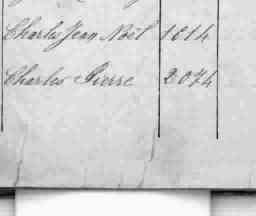 Charles Jean Noël 1014
Charles Pierre 2074